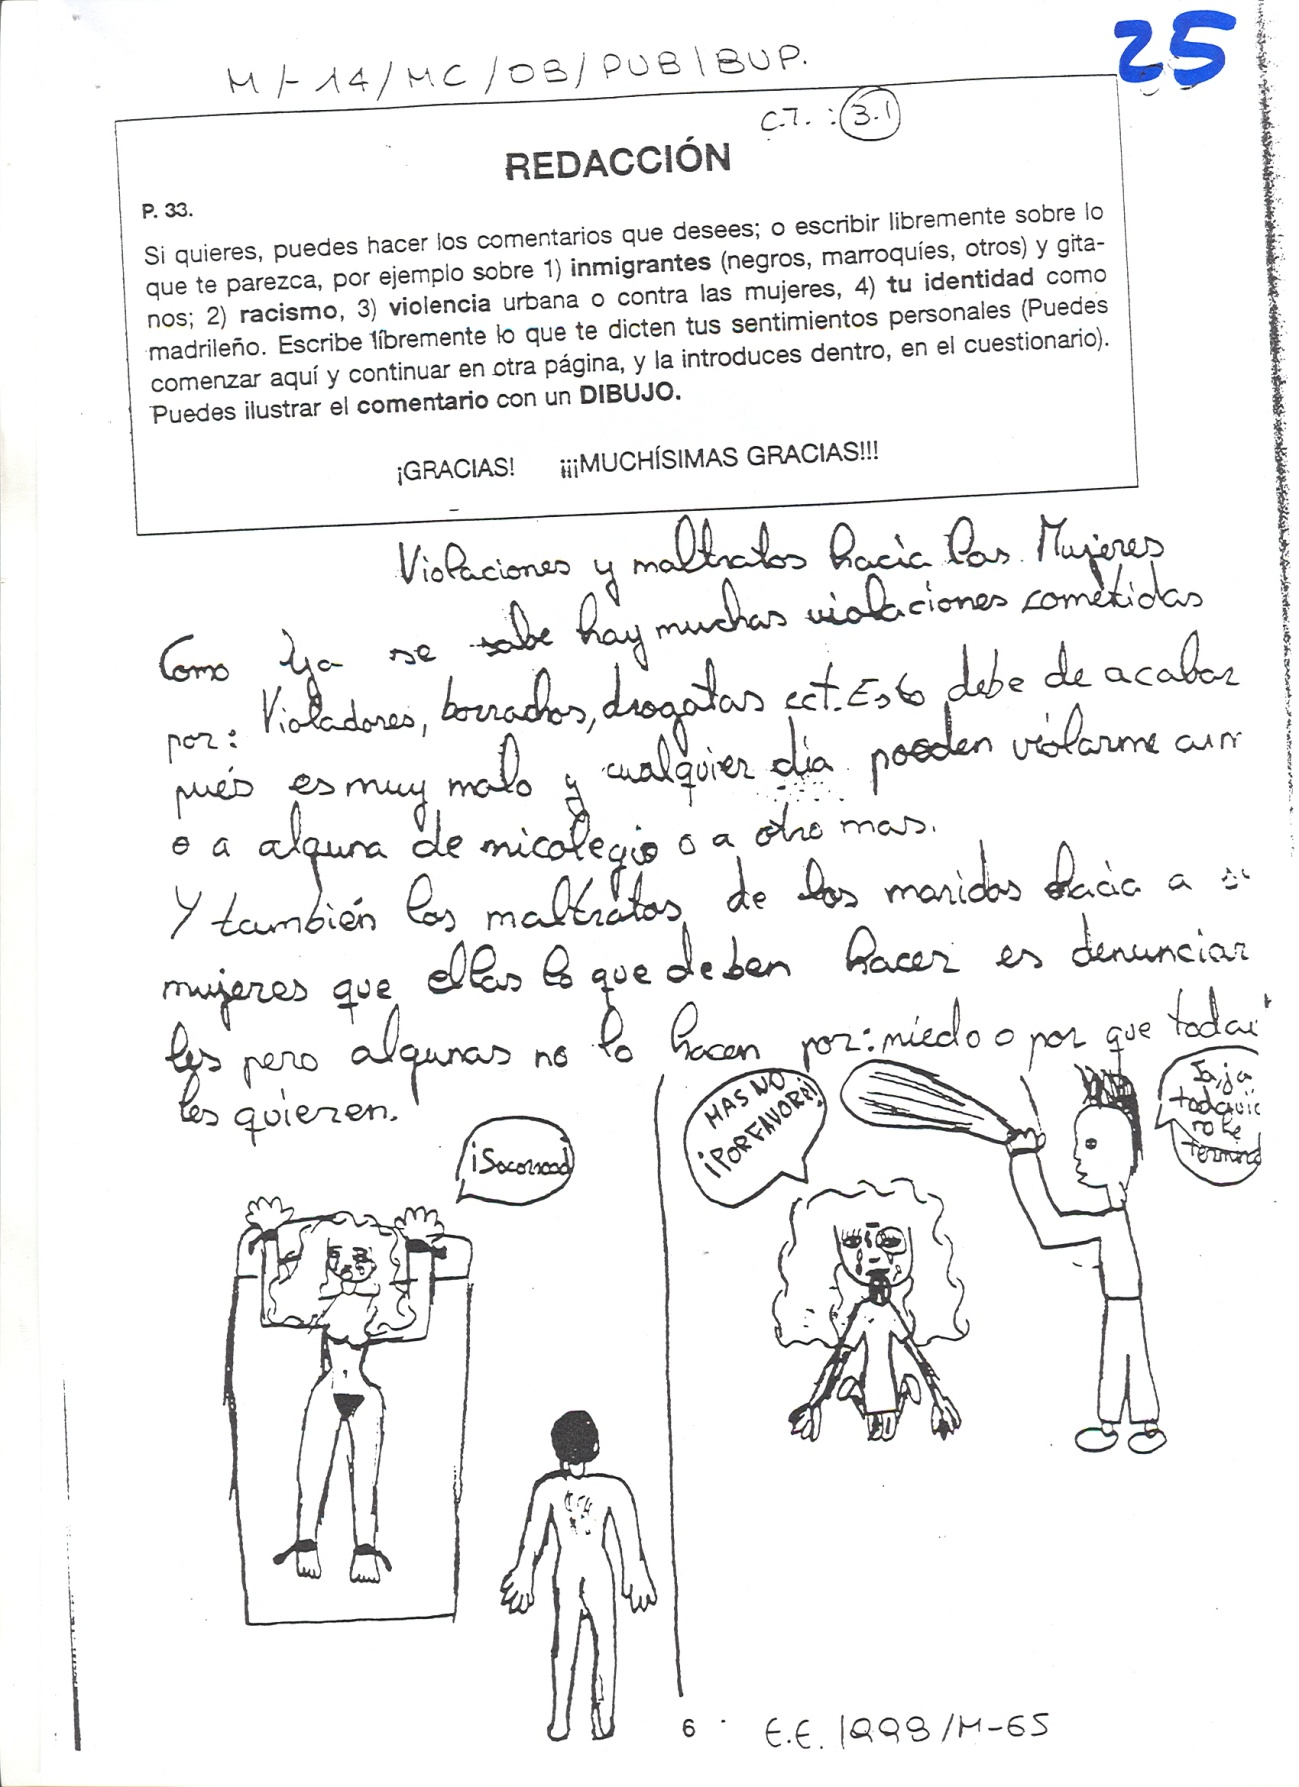 25
M/-14/MC/OB/PUB/BUP.
C.T. : 3.1
REDACCIÓN
P. 33.
Si quieres, puedes hacer los comentarios que desees; o escribir libremente sobre lo
que te parezca, por ejemplo sobre 1) inmigrantes (negros, marroquíes, otros) y gita-
nos; 2) racismo, 3) violencia urbana o contra las mujeres, 4) tu identidad como
madrileño. Escribe libremente lo que te dicten tus sentimientos personales (Puedes
comenzar aquí y continuar en otra página, y la introduces dentro, en el cuestionario).
Puedes ilustrar el comentario con un DIBUJO.
¡GRACIAS! ¡¡¡MUCHÍSIMAS GRACIAS!!!
Violaciones y maltratos hacia las Mujeres
Como ya se sabe hay muchas violaciones cometidas
por: Violadores, borrachos, drogatas ect. Esto debe de acabar
pués es muy malo y cualquier día pueden violarme
o a alguna de mi colegio o a otro mas.
Y también los maltratos de los maridos hacia a
mujeres que ellas lo que deben hacer es denunciar
les pero algunas no lo hacen por: miedo o por que
les quieren.
¡Socorrooo!
MAS NO
¡POR FAVOR!
Ja, ja
no he
6
E.E. 1993/M-65